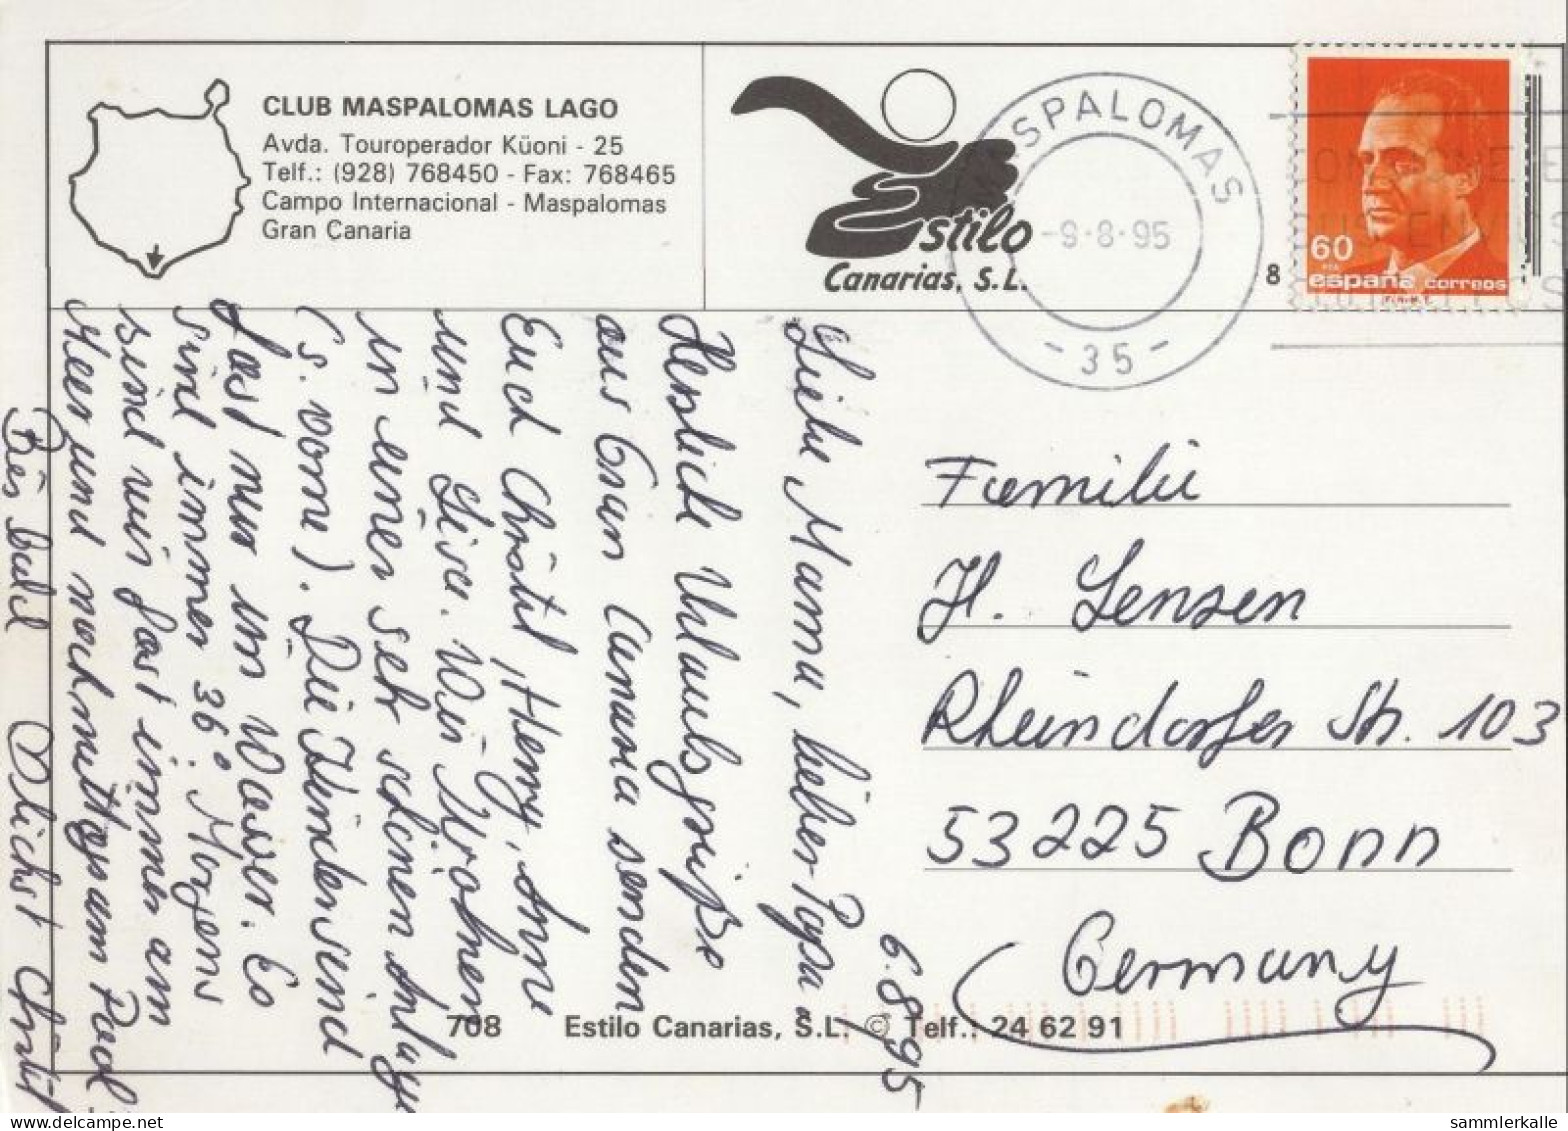 CLUB MASPALOMAS LAGO
Avda. Touroperador Küoni - 25
Telf.: (928) 768450 - Fax: 768465
Campo Internacional - Maspalomas
Gran Canaria
Estilo
Canarias, S.L.
MASPALOMAS
-9-8-95
- 35 -
8
60
PTA
españa correos
6.8.95
Liebe Mama, lieber Papa
Herzliche Urlaubsgrüße
aus Gran Canaria senden
Euch Christel, Henry, Anne
und Lisa. Wir wohnen
in einer sehr schönen Anlage
(s. vorne). Die Kinder sind
fast nur im Wasser. Es
sind immer 36°. Morgens
sind wir fast immer am
Meer und nachmittags am Pool.
Bis bald
Familie
H. Lenzen
Rheindorfer Str. 103
53225 Bonn
Germany
708
Estilo Canarias, S.L. © Telf.: 24 62 91
sammlerkalle